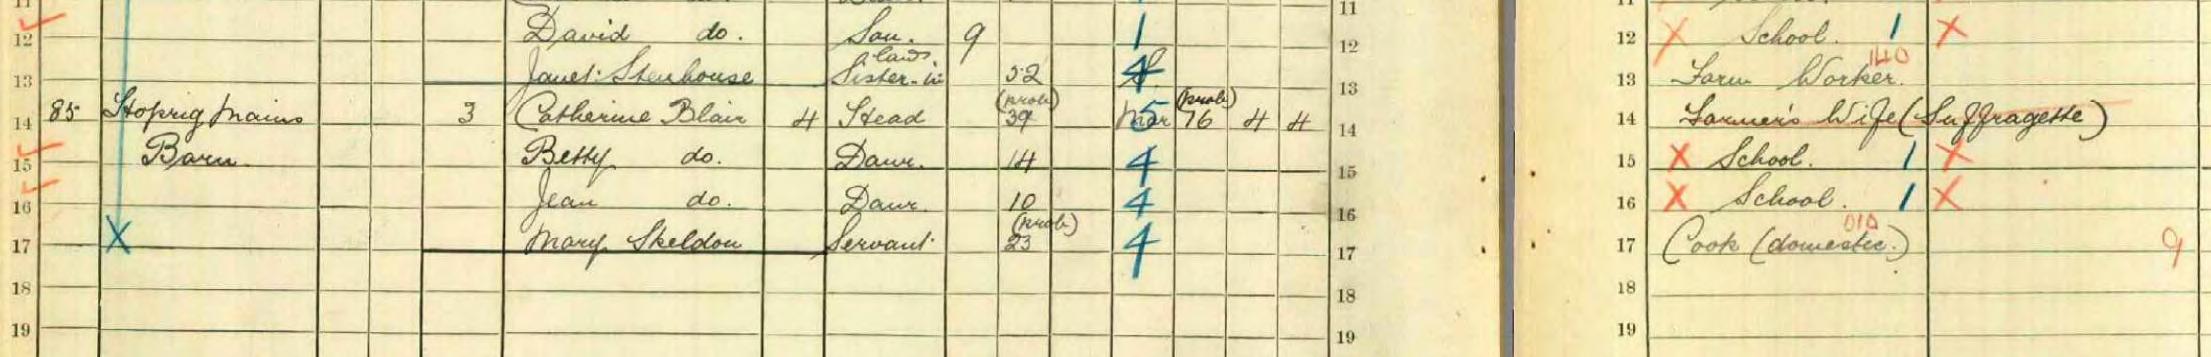 11 11 11
12 David do. Son. 9 1 12 12 X School. 1 X
law.
13 Janet Stenhouse Sister-in 52 S. 4 13 13 Farm Worker. 140
(prob) (prob)
85 Hoprig Mains 3 Catherine Blair 4 Head 39 Mar 5 16 4 4 14 Farmer's Wife (Suffragette)
14
15 Barn. Betty do. Daur. 14 4 15 15 X School. 1 X
16 Jean do. Daur. 10 4 16 16 X School. 1 X
(prob)
17 X Mary Skeldon Servant 23 4 17 17 Cook (domestic.) 010 9
18 18 18
19 19 19